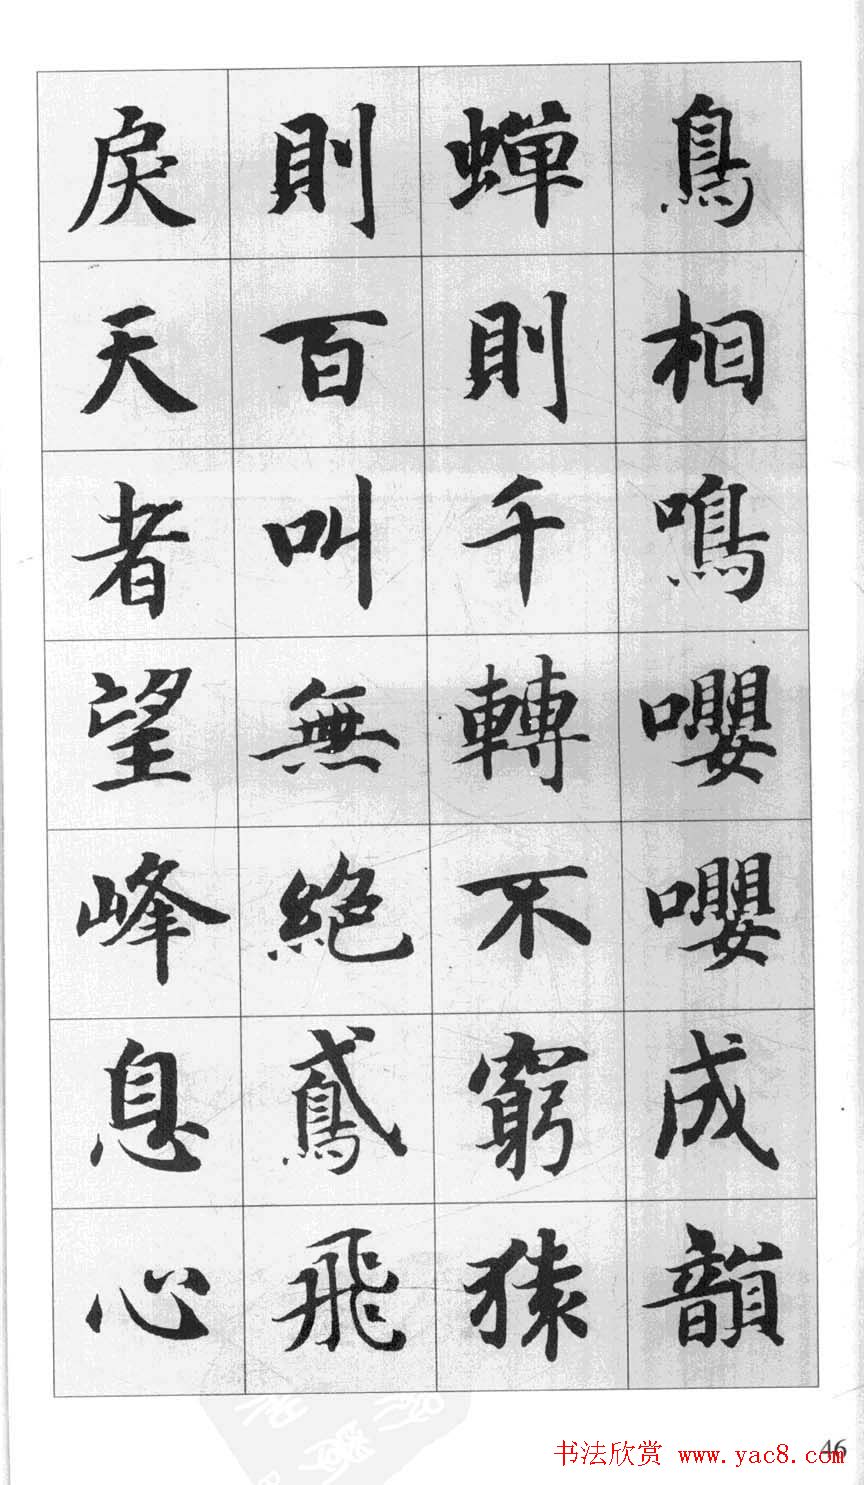 鳥相鳴嚶嚶成韻
蟬則千轉不窮猿
則百叫無絕鳶飛
戾天者望峰息心
46
书法欣赏 www.yac8.com